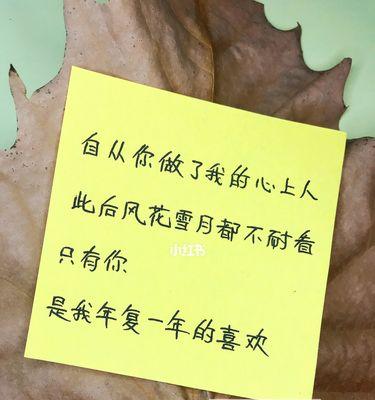 自从你做了我的心上人
此后风花雪月都不耐看
小红书
只有你
是我年复一年的喜欢